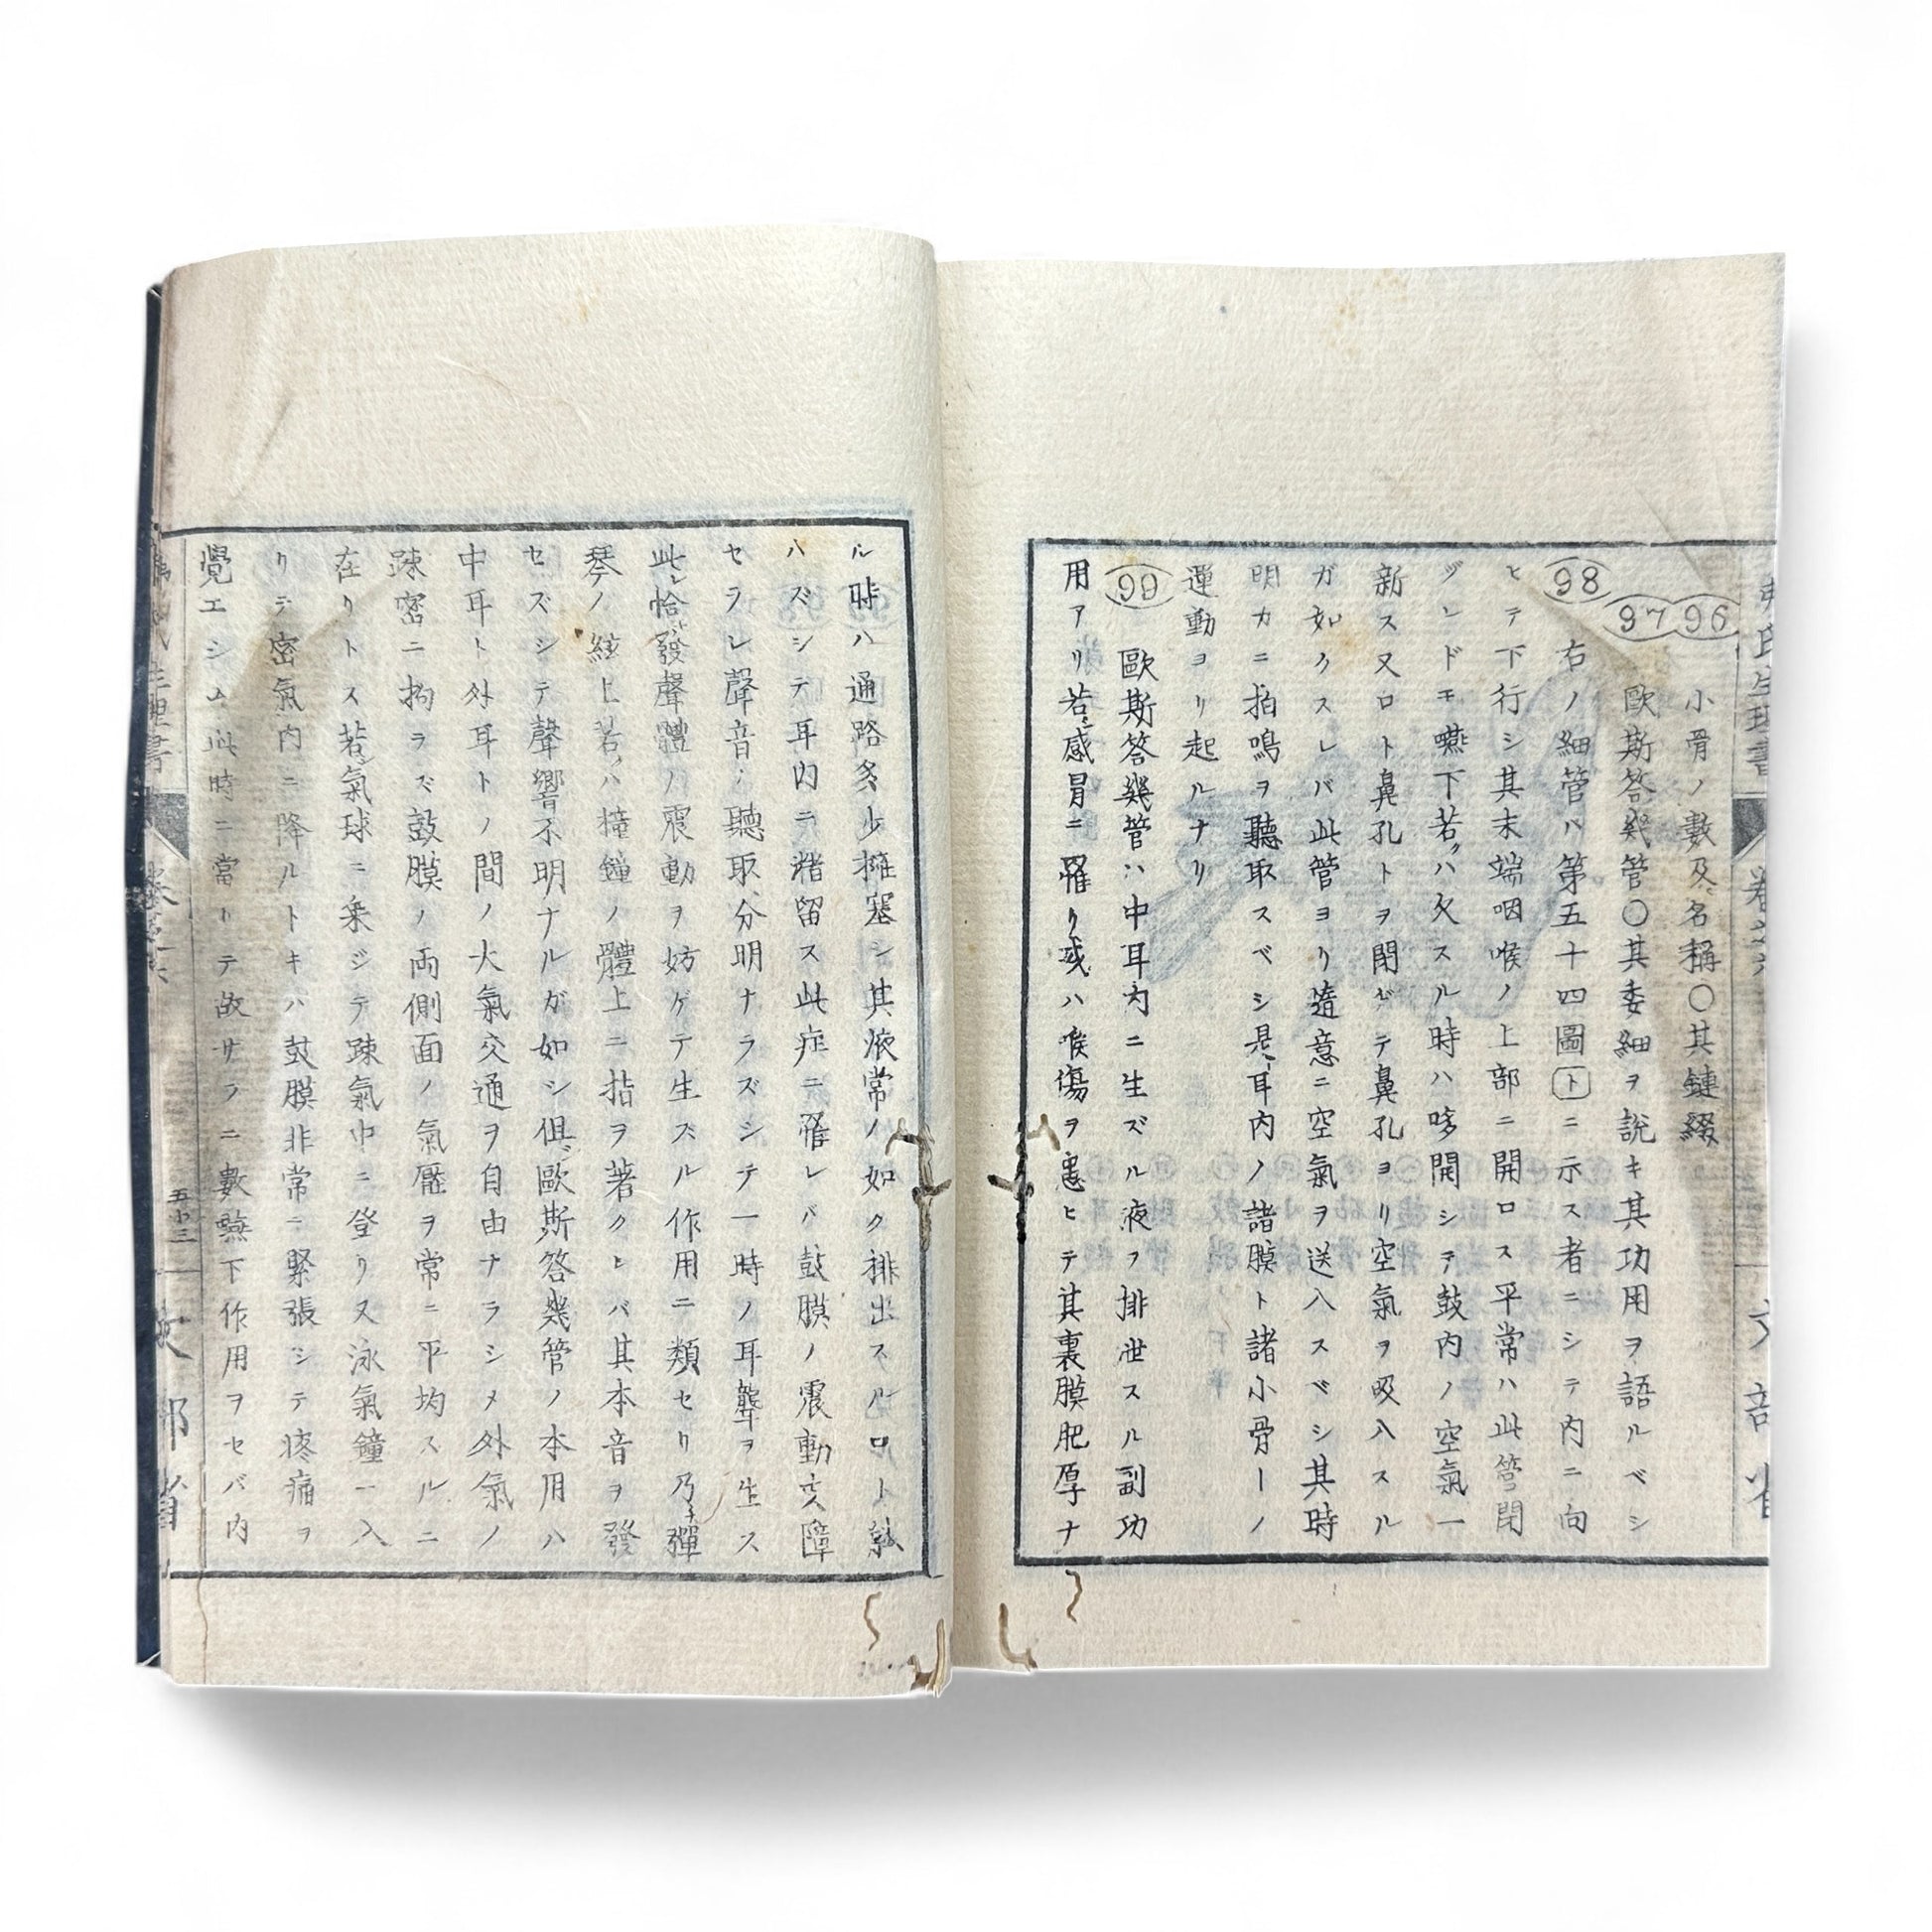 96
小骨ノ數及名稱〇其鏈綴
97
歐斯答幾管〇其委細ヲ說キ其功用ヲ語ルベシ
98
右ノ細管ハ第五十四圖トニ示ス者ニシテ内ニ向
ヒテ下行シ其末端咽喉ノ上部ニ開口ス平常ハ此管閉
ヅレドモ嚥下若クハ欠スル時ハ哆開シテ鼓内ノ空氣一
新ス又口ト鼻孔トヲ閉ぢテ鼻孔ヨリ空氣ヲ吸入スル
ガ如クスレバ此管ヨリ隨意ニ空氣ヲ送入スベシ其時
明カニ拍鳴ヲ聽取スベシ是耳内ノ諸膜ト諸小骨トノ
運動ヨリ起ルナリ
99
歐斯答幾管ハ中耳内ニ生ズル液ヲ排泄スル副功
用アリ若シ感冒ニ罹リ或ハ喉傷ヲ患ヒテ其裏膜肥厚ナ
ル時ハ通路多少擁塞シ其液常ノ如ク排出スルコト能
ハズシテ耳内ニ瀦留ス此症ニ罹レバ鼓膜ノ震動支障
セラレ聲音ノ聽取分明ナラズシテ一時ノ耳聾ヲ生ス
此レ恰モ發聲體ノ震動ヲ妨ゲテ生ズル作用ニ類セリ乃チ彈
琴ノ絃上若クハ撞鐘ノ體上ニ指ヲ著クレバ其本音ヲ發
セズシテ聲響不明ナルガ如シ但シ歐斯答幾管ノ本用ハ
中耳ト外耳トノ間ノ大氣交通ヲ自由ナラシメ外氣ノ
疎密ニ拘ラズ鼓膜ノ両側面ノ氣壓ヲ常ニ平均スルニ
在リトス若シ氣球ニ乘ジテ疎氣中ニ登リ又泳氣鐘ニ入
リテ密氣内ニ降ルトキハ鼓膜非常ニ緊張シテ疼痛ヲ
覺エシム此時ニ當トテ故サラニ數嚥下作用ヲセバ内
五十三
文部省